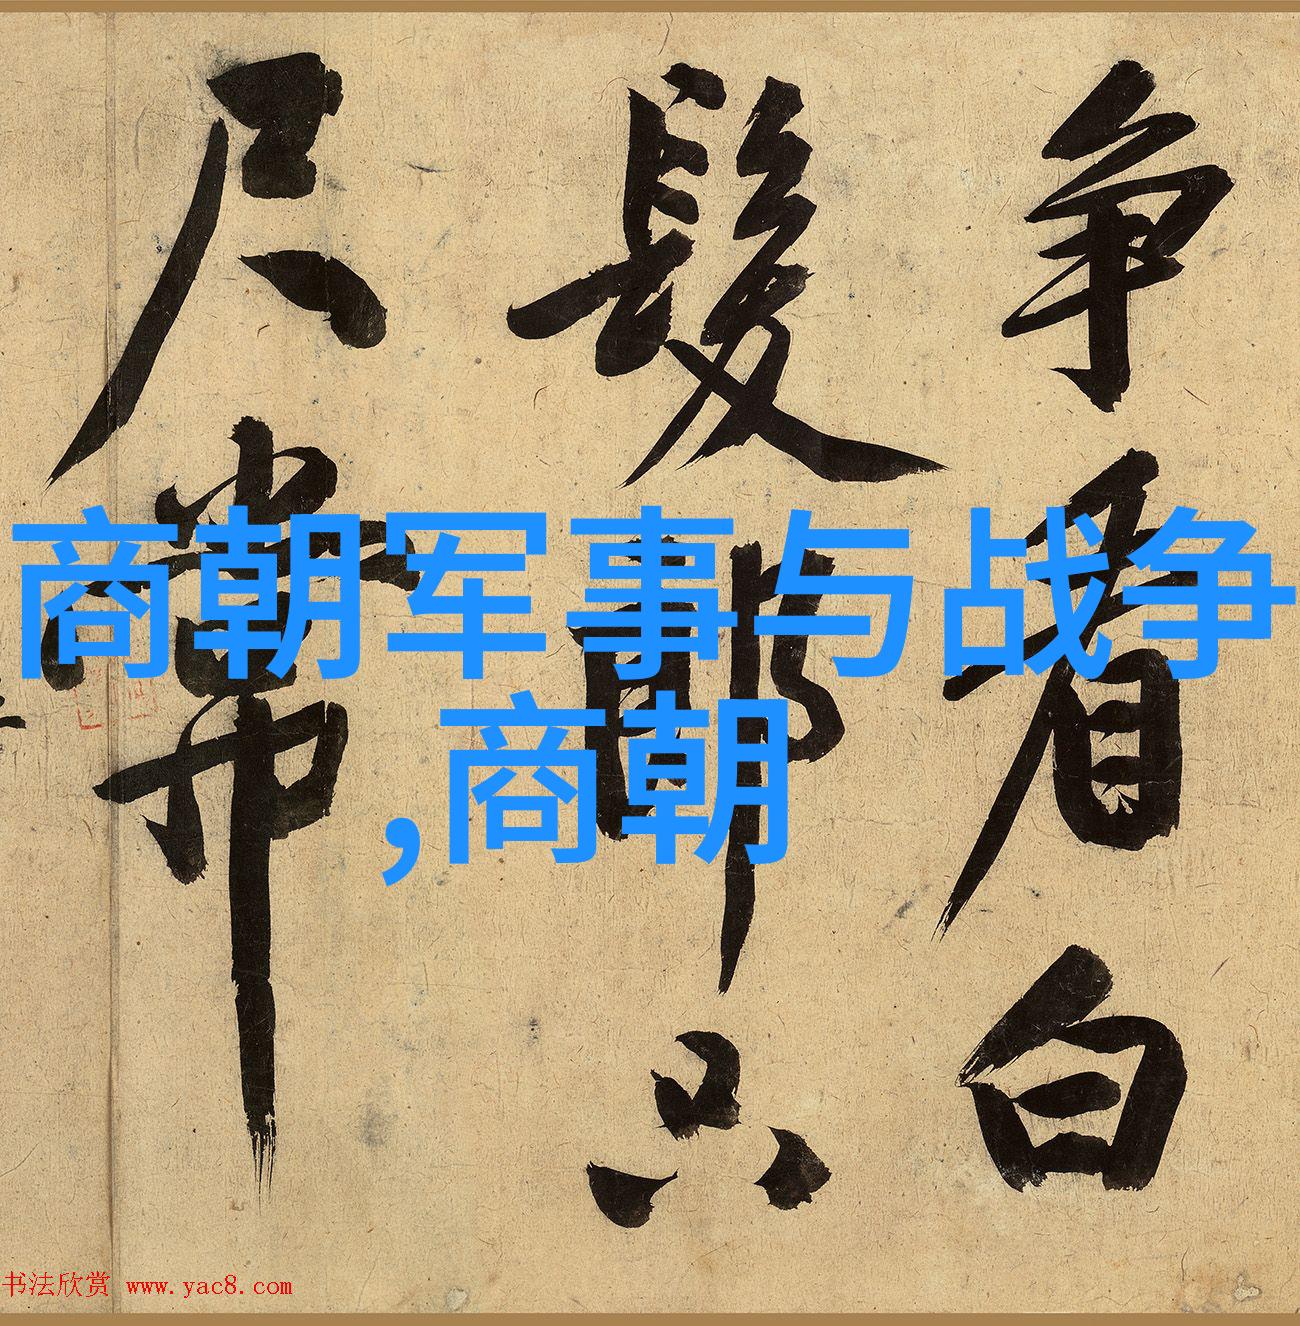 争看白
髮郎只
尺常
商朝军事与战争
,商朝
书法欣赏 www.yac8.com